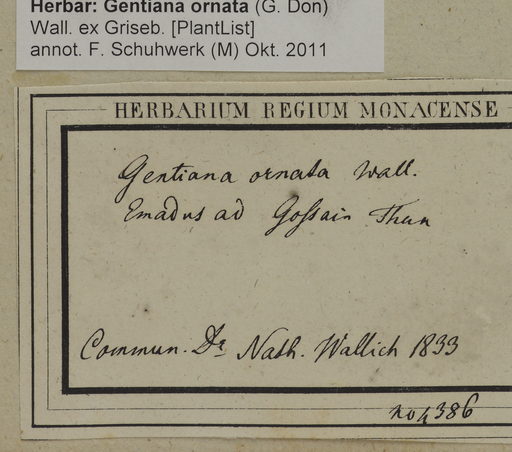 Herbar: Gentiana ornata (G. Don)
Wall. ex Griseb. [PlantList]
annot. F. Schuhwerk (M) Okt. 2011
HERBARIUM REGIUM MONACENSE
Gentiana ornata Wall.
Emadus ad Goſsain Than
Commun. Dr Nath. Wallich 1833
no 4386